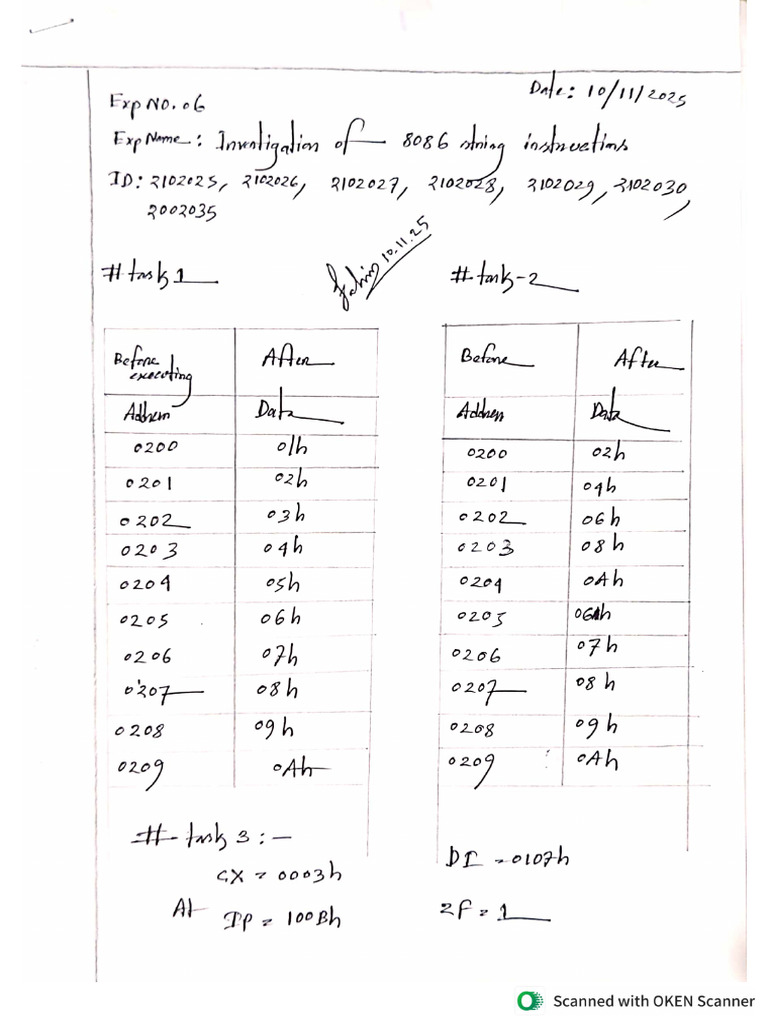 Date: 10/11/2025
Exp NO. 06
Exp Name: Investigation of 8086 string instructions
ID: 2102025, 2102026, 2102027, 2102028, 2102029, 2102030,
2002035
10.11.25
# task 1
# task-2
Before executing After
Address Data
0200 01h
0201 02h
0202 03h
0203 04h
0204 05h
0205 06h
0206 07h
0207 08h
0208 09h
0209 0Ah
Before After
Address Data
0200 02h
0201 04h
0202 06h
0203 08h
0204 0Ah
0205 06h
0206 07h
0207 08h
0208 09h
0209 0Ah
# task 3 :-
CX = 0003h
At IP = 100Bh
DI = 0107h
ZF = 1
Scanned with OKEN Scanner